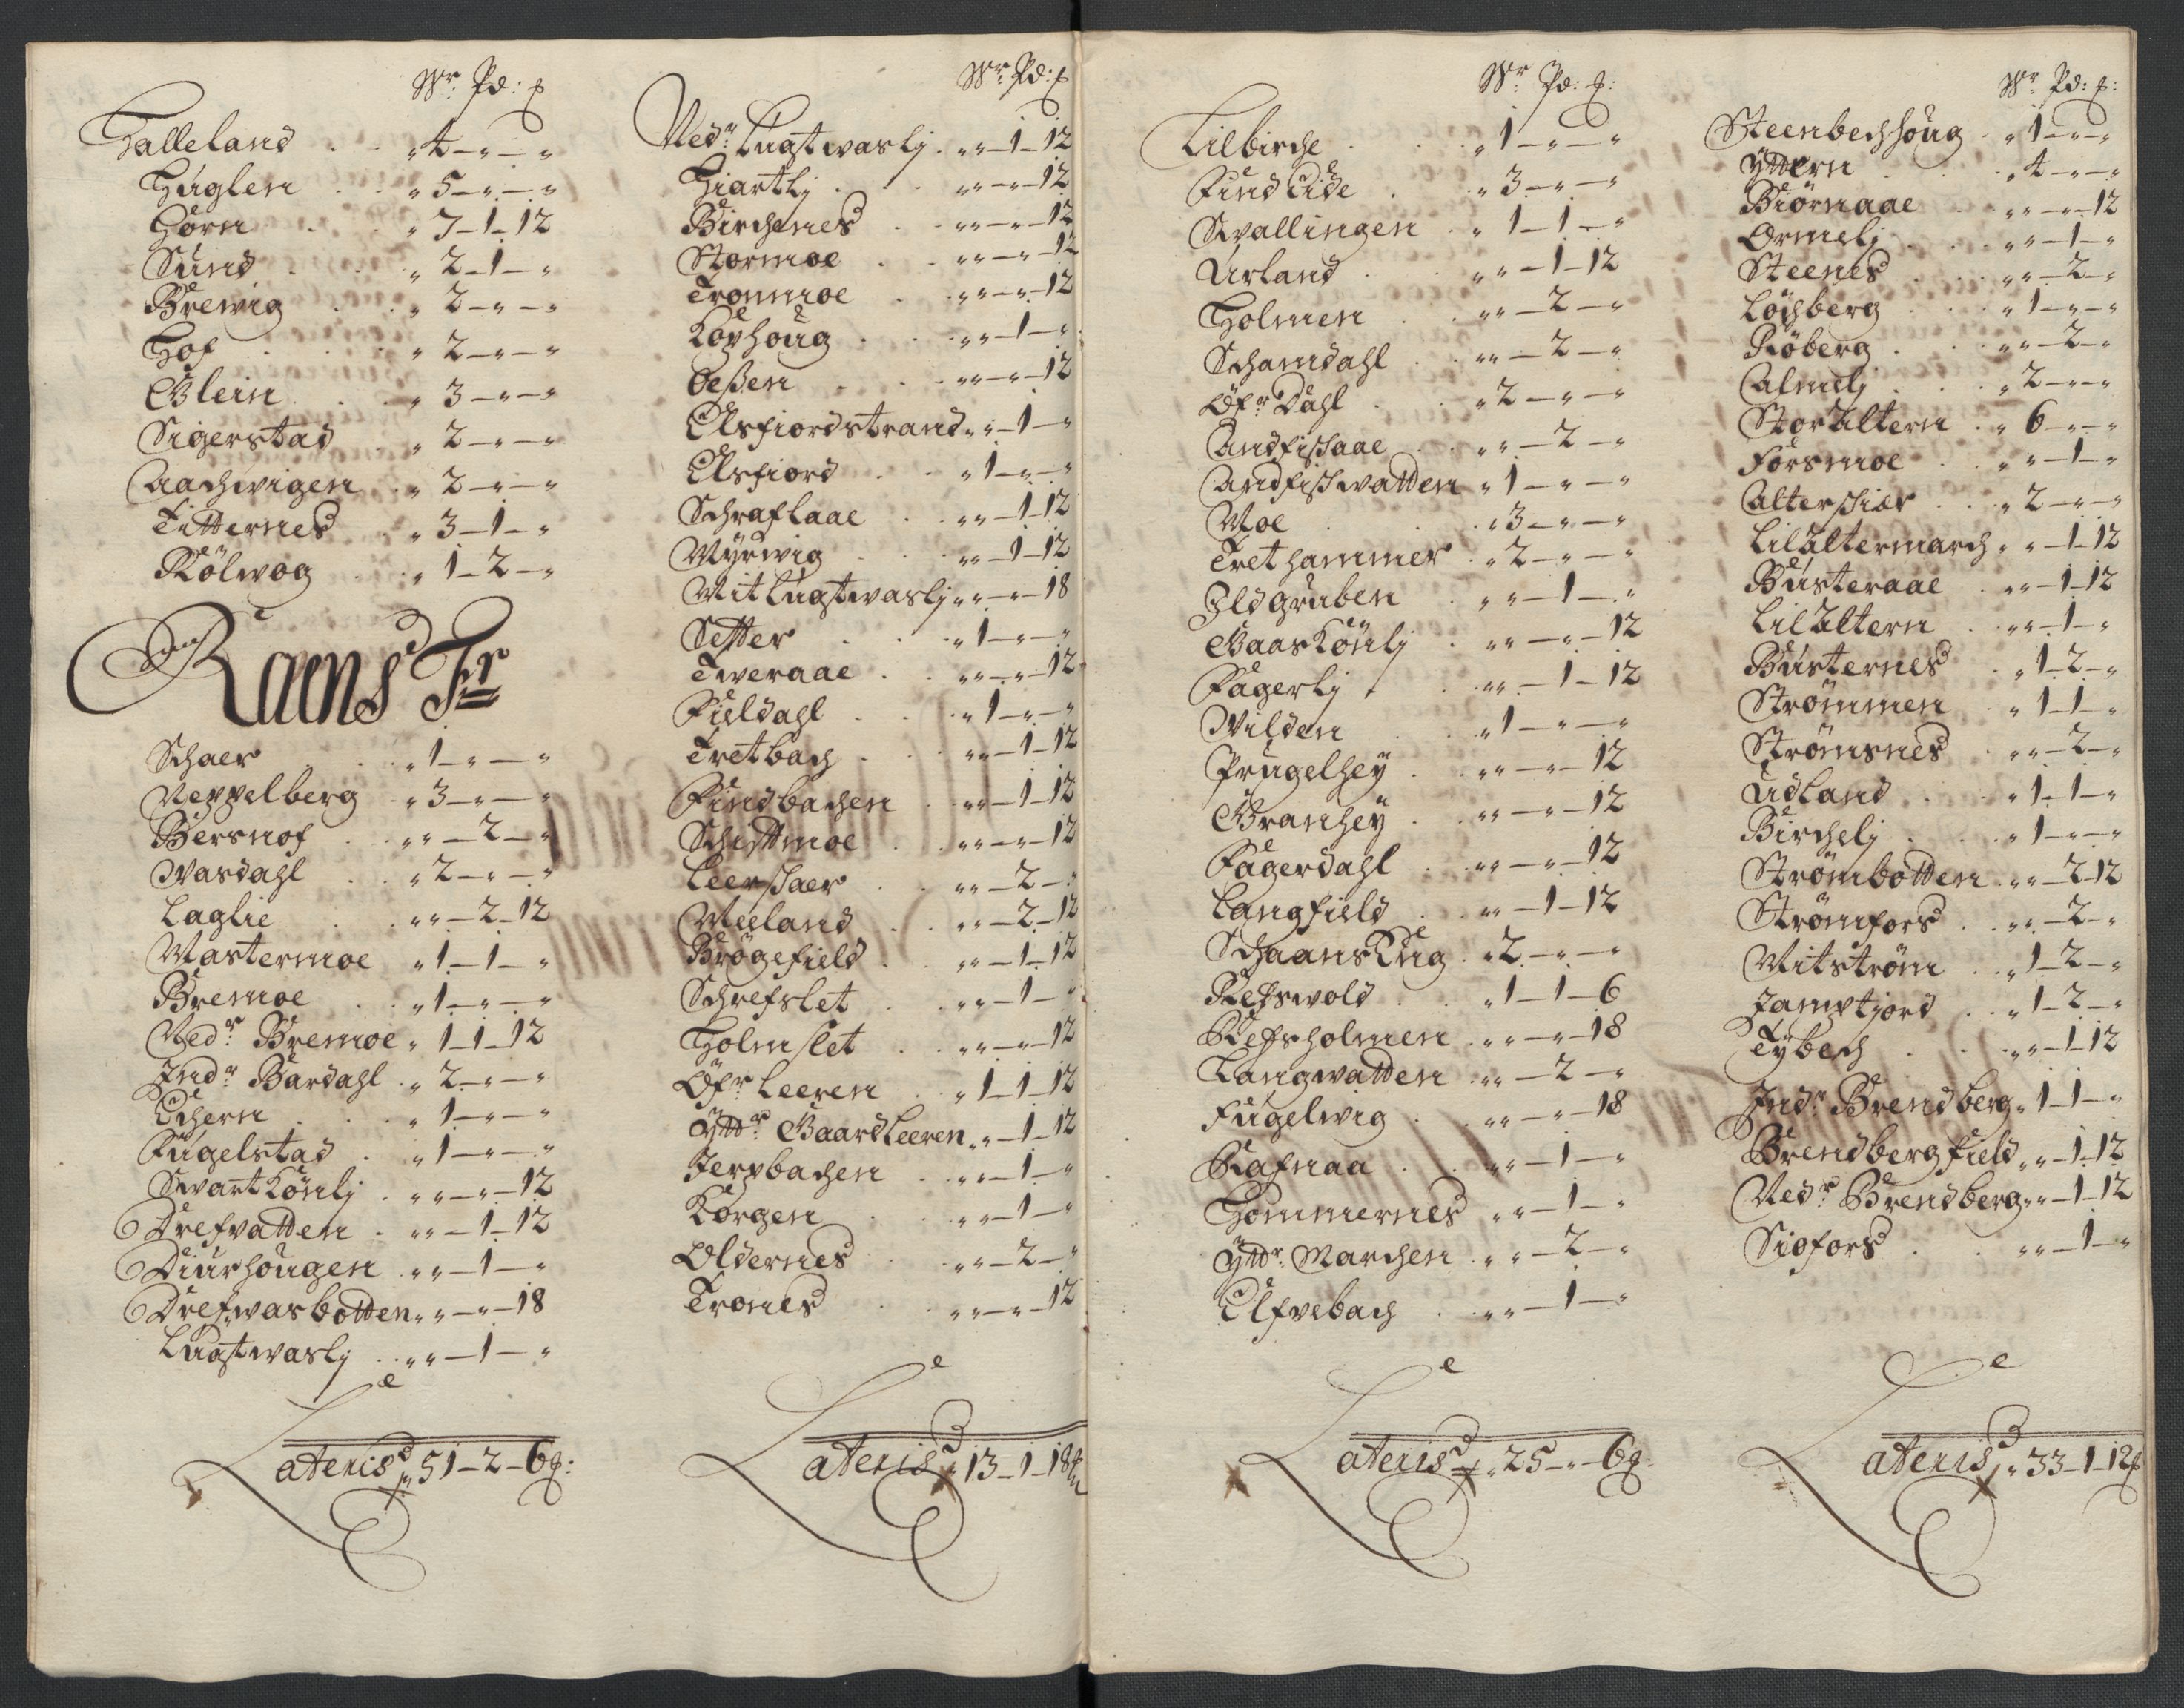 Wr Pd: ₰
Halleland . . „ 4 – „ – „
Huglen . . „ 5 – „ – „
Horn . . „ 7 – 1 – 12
Sund . . „ 2 – 1 – „
Brewig . . „ 2 – „ – „
Hof . . „ 2 – „ – „
Glein . . „ 3 – „ – „
Sigerstad . . „ 2 – „ – „
Aachwigen . „ 2 – „ – „
Titternes . „ 3 – 1 – „
Kölwog . „ 1 – 2 – „
Raens Fr
Schaer . . „ 1 – „ – „
Neppelberg . „ 3 – „ – „
Bersnof . „ „ – 2 – „
Wasdahl . „ 2 – „ – „
Laglie . „ „ – 2 – 12
Mastermoe „ 1 – 1 – „
Bremoe . . „ 1 – „ – „
Nedr Bremoe „ 1 – 1 – 12
Indr Bardahl . „ 2 – „ – „
Echern . . „ 1 – „ – „
Fugelstad . „ 1 – „ – „
Swartkönlj . „ „ – „ – 12
Drefvatten . „ „ – 1 – 12
Diurhougen . „ „ – 1 – „
Drefwasbotten „ „ – „ – 18
Lugtwaslj . . „ „ – 1 – „
Lateris „ 51 – 2 – 6 ₰:
Wr Pd: ₰
Nedr Lugtwaslj . „ „ – 1 – 12
Hiartlj . „ „ – „ – 12
Birchenes . „ „ – „ – 12
Stormoe . „ „ – „ – 12
Tronmoe . „ „ – „ – 12
Kophoug . „ „ – 1 – „
Oeßen . „ „ – „ – 12
Elsfiordstrand „ „ – 1 – „
Elsfiord . „ 1 – „ – „
Schraflaae . „ „ – 1 – 12
Myrwig . „ „ – 1 – 12
Mitlugtwaslj „ „ – „ – 18
Setter . . „ 1 – „ – „
Tweraae . „ „ – „ – 12
Fieldahl . . „ 1 – „ – „
Tretbach . „ „ – 1 – 12
Findbachen . „ „ – 1 – 12
Schittmoe . „ „ – „ – 12
Leerschaer . „ „ – 2 – „
Meeland . „ „ – 2 – 12
Brögefield . „ „ – 1 – 12
Schrefslet . „ „ – 1 – „
Holmslet . „ „ – „ – 12
Öfr Leeren . „ 1 – 1 – 12
Yttr Gaardleeren „ „ – 1 – 12
Jerpbachen . „ „ – 1 – „
Korgen . „ „ – 1 – „
Oldernes . „ „ – 2 – „
Trones . „ „ – „ – 12
Lateris „ 13 – 1 – 18 ₰
Wr Pd: ₰:
Lilbirche . . „ 1 – „ – „
Find Eide . „ 3 – „ – „
Qvallingen . „ 1 – 1 – „
Urland . „ „ – 1 – 12
Holmen . „ „ – 2 – „
Schamdahl . „ „ – 2 – „
Öfr Dahl . „ 2 – „ – „
Andfißaae . „ „ – 2 – „
Andfißwatten „ 1 – „ – „
Moe . . „ 3 – „ – „
Trethammer . „ 2 – „ – „
Ildgruben . „ „ – 1 – „
Gaaskönlj . „ „ – „ – 12
Fagerlj . „ „ – 1 – 12
Wilden . . „ 1 – „ – „
Prugelhey . „ „ – „ – 12
Granhey . „ „ – „ – 12
Fagerdahl . „ „ – „ – 12
Langfield . „ „ – 1 – 12
Schaanseng . „ 2 – „ – „
Refswold . . „ 1 – 1 – 6
Refsholmen . „ „ – „ – 18
Langwatten . „ „ – 2 – „
Fugelwig . „ „ – „ – 18
Rafnaa . „ „ – 1 – „
Hommernes „ „ – 1 – „
Yttr Marchen . „ „ – 2 – „
Elfvebach . „ „ – 1 – „
Lateris „ 25 – „ – 6 ₰:
Wr Pd: ₰:
Steenbechhoug . „ 1 – „ – „
Yttern . . „ 4 – „ – „
Biörnaae . „ „ – „ – 12
Ormelj . „ „ – 1 – „
Steenes . „ „ – 2 – „
Löchberg . „ 1 – „ – „
Röberg . „ „ – 2 – „
Almelj . „ 2 – „ – „
Stor Altern . „ 6 – „ – „
Forsmoe . „ „ – 1 – „
Alterschier . . „ 2 – „ – „
Lilaltermarch . „ „ – 1 – 12
Busteraae . „ „ – 1 – 12
Lilaltern . „ „ – 1 – „
Busternes . „ 1 – 2 – „
Strömmen . „ 1 – 1 – „
Strömsnes . „ „ – 2 – „
Udland . . „ 1 – 1 – „
Birchelj . . „ 1 – „ – „
Strömbotten . „ „ – 2 – 12
Strömfors . „ „ – 2 – „
Mitström . „ 1 – 2 – „
Jamptjord . . „ 1 – 2 – „
Tybech . „ „ – 1 – 12
Indr Brendberg „ 1 – 1 – „
Brendbergfield „ „ – 1 – 12
Nedr Brendberg „ „ – 1 – 12
Siofors . . „ „ – 1 – „
Lateris „ 33 – 1 – 12 ₰